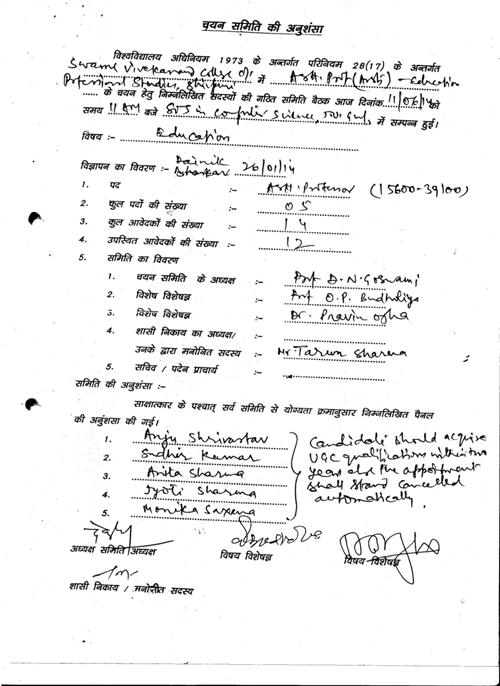 चयन समिति की अनुशंसा
विश्वविद्यालय अधिनियम 1973 के अन्तर्गत परिनियम 28(17) के अन्तर्गत
Swami Vivekanand College of में Asst. Prof (Arts) - Education
Professional Studies, Shivpuri
..... के चयन हेतु निम्नलिखित सदस्यों की गठित समिति बैठक आज दिनांक 11/06/14 को
समय 11 AM बजे SOS in Computer Science, में सम्पन्न हुई।
विषय :- Education
विज्ञापन का विवरण :- Dainik Bhaskar 26/01/14
1. पद :- Asst. Professor (15600-39100)
2. कुल पदों की संख्या :- 05
3. कुल आवेदकों की संख्या :- 14
4. उपस्थित आवेदकों की संख्या :- 12
5. समिति का विवरण
1. चयन समिति के अध्यक्ष :- Prof D.N. Goswami
2. विशेष विशेषज्ञ :- Prof O.P. Budholiya
3. विशेष विशेषज्ञ :- Dr. Pravin Ojha
4. शासी निकाय का अध्यक्ष/ :-
उनके द्वारा मनोनित सदस्य :- Mr Tarun Sharma
5. सचिव / पदेन प्राचार्य :-
समिति की अनुशंसा :-
साक्षात्कार के पश्चात् सर्व समिति से योग्यता क्रमानुसार निम्नलिखित पैनल
की अनुंशसा की गई।
1. Anju Shrivastav
2. Sudhir Kumar
3. Anita Sharma
4. Jyoti Sharma
5. Monika Saxena
Candidate should acquire
UGC qualifications within two
years also the appointment
shall stand cancelled
automatically.
अध्यक्ष समिति/अध्यक्ष
विषय विशेषज्ञ
विषय-विशेषज्ञ
शासी निकाय / मनोनीत सदस्य